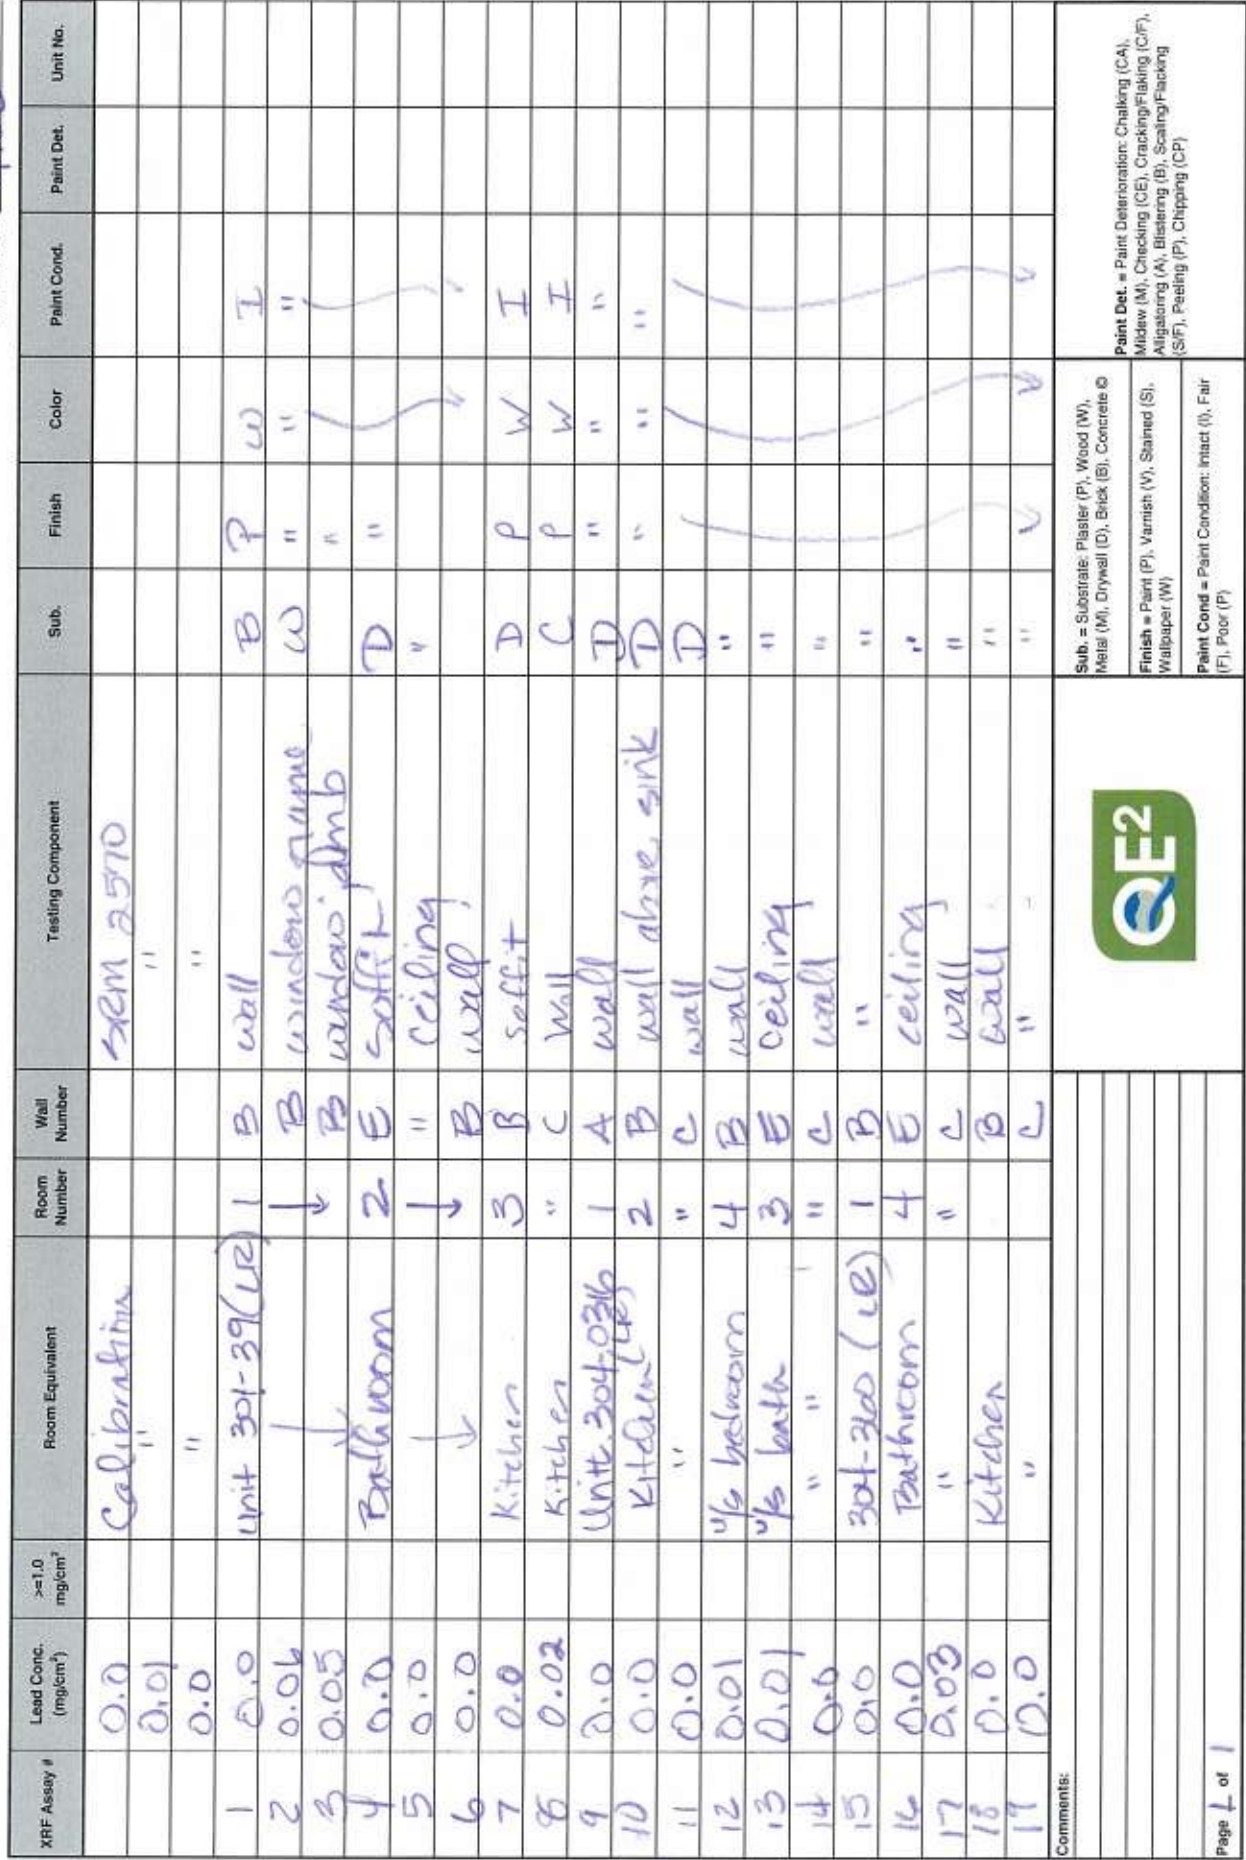 XRF Assay # Lead Conc. (mg/cm²) >=1.0 mg/cm² Room Equivalent Room Number Wall Number Testing Component Sub. Finish Color Paint Cond. Paint Det. Unit No.
0.0 Calibration SRM 2570
0.01 " "
0.0 " "
1 0.0 unit 301-39(LR) 1 B wall B P W I
2 0.06 ↓ B window frame W " " "
3 0.05 ↓ ↓ B window jamb "
4 0.0 Bathroom 2 E Soffit D "
5 0.0 ↓ " ceiling "
6 0.0 ↓ ↓ B wall
7 0.0 Kitchen 3 B Soffit D P W I
8 0.02 Kitchen " C Wall C P W I
9 0.0 Unit 304-036 1 A wall D " " "
10 0.0 Kitchen (LR) 2 B wall above sink D " " "
11 0.0 " " C wall D
12 0.01 u/s bedroom 4 B wall "
13 0.01 u/s bath 3 E ceiling "
14 0.0 " " " C wall "
15 0.0 304-360 (LR) 1 B " "
16 0.0 Bathroom 4 E ceiling "
17 0.03 " " C wall "
18 0.0 Kitchen B wall "
19 0.0 " C " "
Comments:
Page 1 of 1
QE2
Sub. = Substrate: Plaster (P), Wood (W),
Metal (M), Drywall (D), Brick (B), Concrete ©
Finish = Paint (P), Varnish (V), Stained (S),
Wallpaper (W)
Paint Cond = Paint Condition: Intact (I), Fair
(F), Poor (P)
Paint Det. = Paint Deterioration: Chalking (CA),
Mildew (M), Checking (CE), Cracking/Flaking (C/F),
Alligatoring (A), Blistering (B), Scaling/Flacking
(S/F), Peeling (P), Chipping (CP)